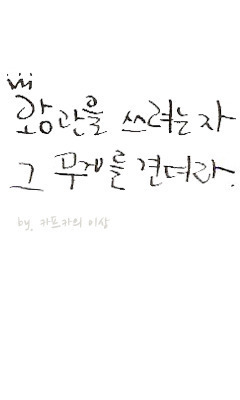 왕관을 쓰려는자
그 무게를 견뎌라.
by. 카프카의 이상